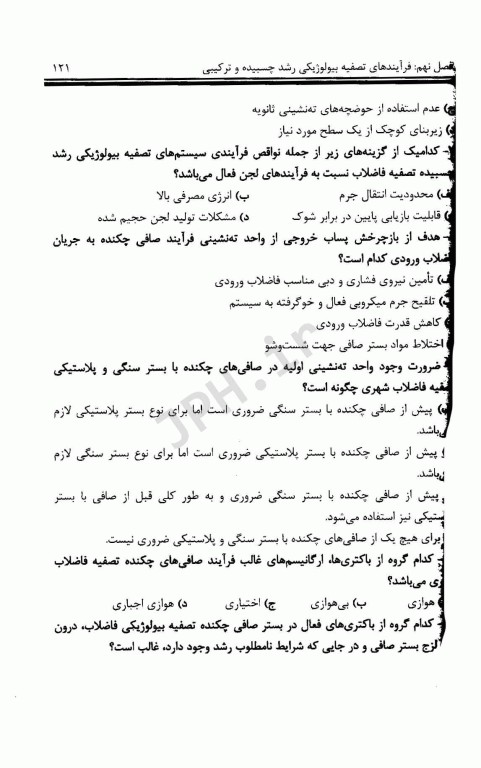 فصل نهم: فرآیندهای تصفیه بیولوژیکی رشد چسبیده و ترکیبی ۱۲۱
ج) عدم استفاده از حوضچه‌های ته‌نشینی ثانویه
د) زیربنای کوچک از یک سطح مورد نیاز
- کدامیک از گزینه‌های زیر از جمله نواقص فرآیندی سیستم‌های تصفیه بیولوژیکی رشد
چسبیده تصفیه فاضلاب نسبت به فرآیندهای لجن فعال می‌باشد؟
الف) محدودیت انتقال جرم ب) انرژی مصرفی بالا
ج) قابلیت بازیابی پایین در برابر شوک د) مشکلات تولید لجن حجیم شده
- هدف از بازچرخش پساب خروجی از واحد ته‌نشینی فرآیند صافی چکنده به جریان
فاضلاب ورودی کدام است؟
الف) تأمین نیروی فشاری و دبی مناسب فاضلاب ورودی
ب) تلقیح جرم میکروبی فعال و خوگرفته به سیستم
کاهش قدرت فاضلاب ورودی
اختلاط مواد بستر صافی جهت شست‌وشو
ضرورت وجود واحد ته‌نشینی اولیه در صافی‌های چکنده با بستر سنگی و پلاستیکی
تصفیه فاضلاب شهری چگونه است؟
پیش از صافی چکنده با بستر سنگی ضروری است اما برای نوع بستر پلاستیکی لازم
نمی‌باشد.
پیش از صافی چکنده با بستر پلاستیکی ضروری است اما برای نوع بستر سنگی لازم
نمی‌باشد.
پیش از صافی چکنده با بستر سنگی ضروری و به طور کلی قبل از صافی با بستر
پلاستیکی نیز استفاده می‌شود.
برای هیچ یک از صافی‌های چکنده با بستر سنگی و پلاستیکی ضروری نیست.
- کدام گروه از باکتری‌ها، ارگانیسم‌های غالب فرآیند صافی‌های چکنده تصفیه فاضلاب
می‌باشد؟
هوازی ب) بی‌هوازی ج) اختیاری د) هوازی اجباری
- کدام گروه از باکتری‌های فعال در بستر صافی چکنده تصفیه بیولوژیکی فاضلاب، درون
لزج بستر صافی و در جایی که شرایط نامطلوب رشد وجود دارد، غالب است؟
JPH.ir